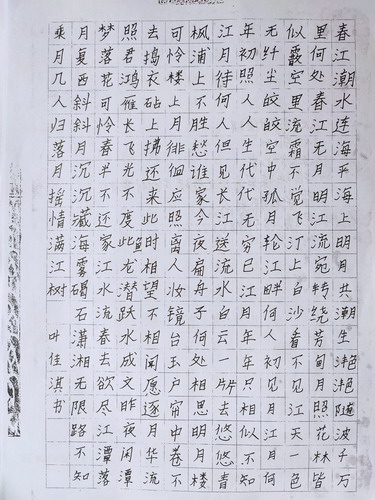 春江潮水连海平海上明月共潮生滟滟随波千万
里何处春江无月明江流宛转绕芳甸月照花林皆
似霰空里流霜不觉飞汀上白沙看不见江天一色
无纤尘皎皎空中孤月轮江畔何人初见月江月何
年初照人人生代代无穷已江月年年只相似不知
江月待何人但见长江送流水白云一片去悠悠青
枫浦上不胜愁谁家今夜扁舟子何处相思明月楼
可怜楼上月徘徊应照离人妆镜台玉户帘中卷不
去捣衣砧上拂还来此时相望不相闻愿逐月华流
照君鸿雁长飞光不度鱼龙潜跃水成文昨夜闲潭
梦落花可怜春半不还家江水流春去欲尽江潭落
月复西斜斜月沉沉藏海雾碣石潇湘无限路不知
乘月几人归落月摇情满江树 叶佳淇书